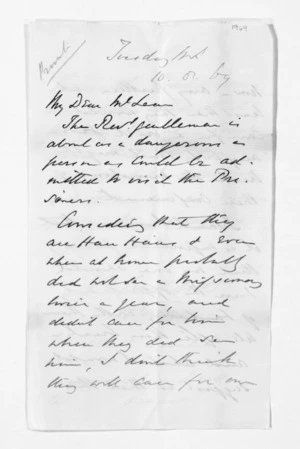 1969
Private
Tuesday Mg
10. 8. 69
My Dear McLean
The Revd gentleman is
about as a dangerous a
person as could be ad-
mitted to visit the Pri-
soners.
Considering that they
are Hau Haus & even
when at home probably
did not see a Missionary
twice a year, and
didn't care for him
when they did see
him, I don't think
they will care for one